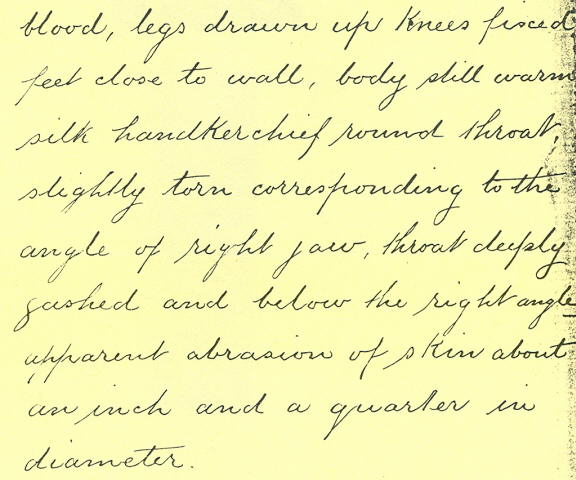 blood, legs drawn up knees fixed
feet close to wall, body still warm
silk handkerchief round throat,
slightly torn corresponding to the
angle of right jaw, throat deeply
gashed and below the right angle
apparent abrasion of skin about
an inch and a quarter in
diameter.